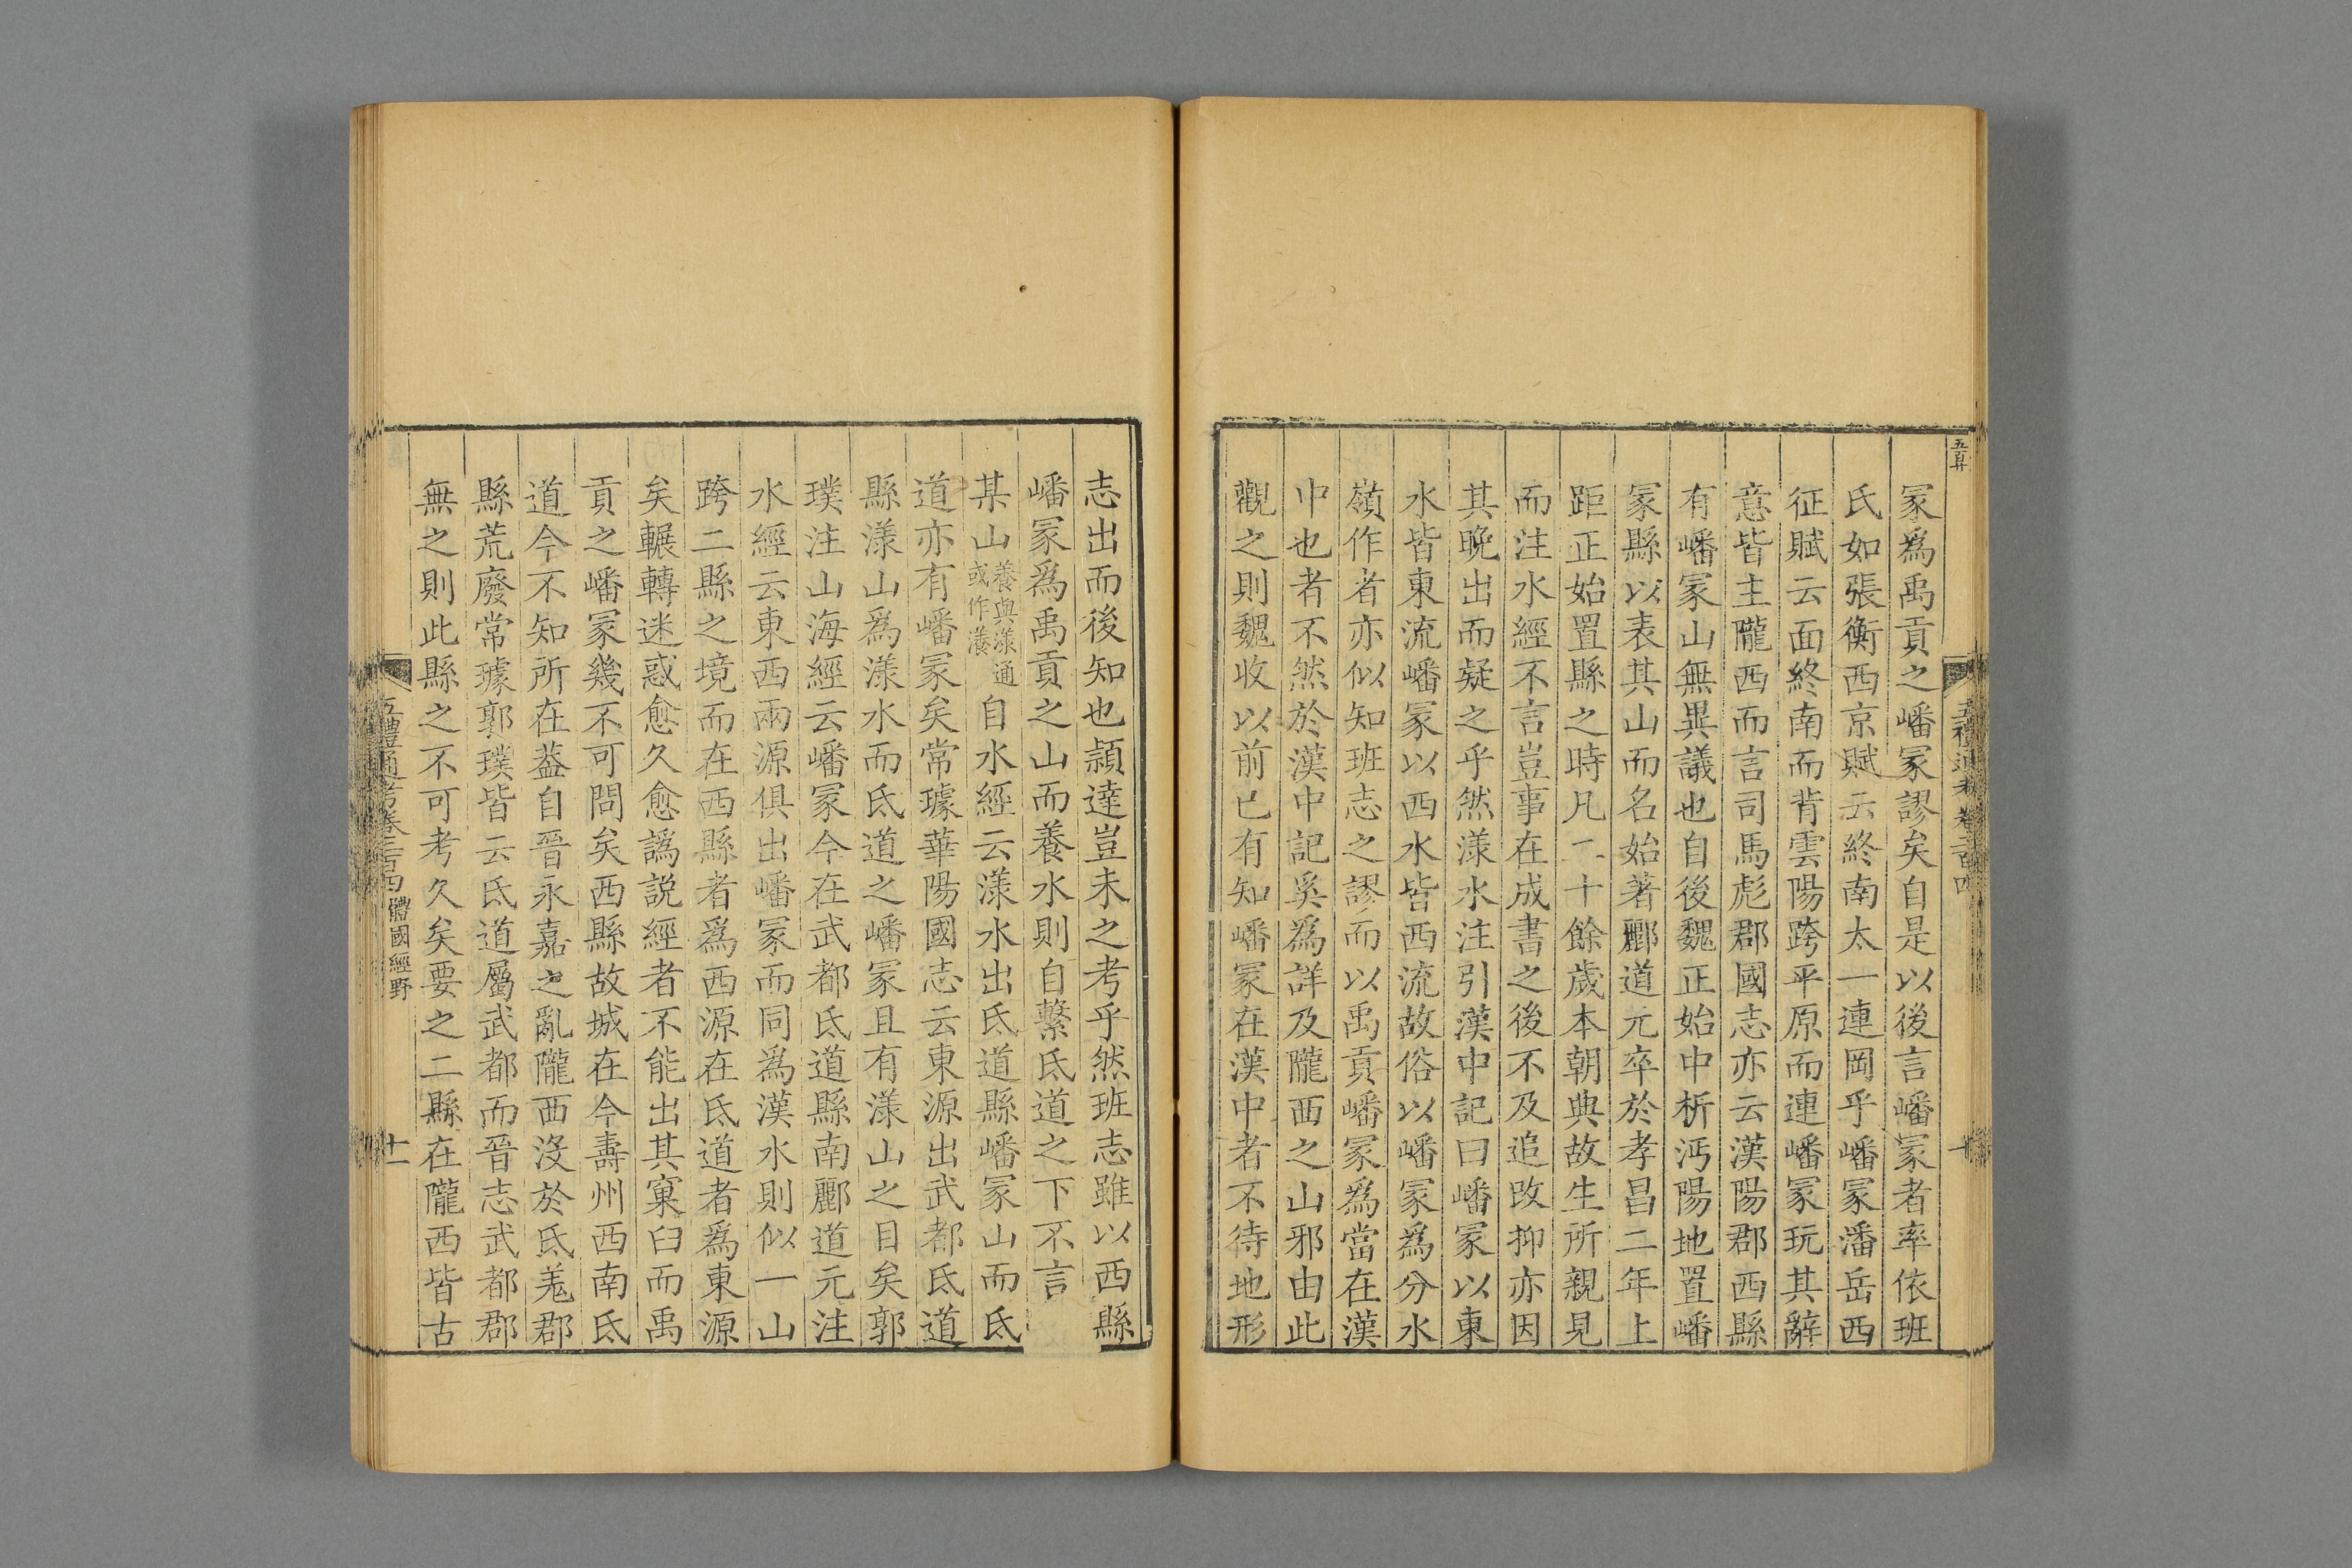 冢爲禹貢之嶓冢謬矣自是以後言嶓冢者率依班
氏如張衡西京賦云終南太一連岡乎嶓冢潘岳西
征賦云面終南而背雲陽跨平原而連嶓冢玩其辭
意皆主隴西而言司馬彪郡國志亦云漢陽郡西縣
有嶓冢山無異議也自後魏正始中析沔陽地置嶓
冢縣以表其山而名始著酈道元卒於孝昌二年上
距正始置縣之時凡二十餘歲本朝典故生所親見
而注水經不言豈事在成書之後不及追改抑亦因
其晚出而疑之乎然漾水注引漢中記曰嶓冢以東
水皆東流嶓冢以西水皆西流故俗以嶓冢爲分水
嶺作者亦似知班志之謬而以禹貢嶓冢爲當在漢
中也者不然於漢中記奚爲詳及隴西之山邪由此
觀之則魏收以前已有知嶓冢在漢中者不待地形
志出而後知也頴達豈未之考乎然班志雖以西縣
嶓冢爲禹貢之山而養水則自繫氐道之下不言
某山養與漾通或作瀁自水經云漾水出氐道縣嶓冢山而氐
道亦有嶓冢矣常璩華陽國志云東源出武都氐道
縣漾山爲漾水而氐道之嶓冢且有漾山之目矣郭
璞注山海經云嶓冢今在武都氐道縣南酈道元注
水經云東西兩源俱出嶓冢而同爲漢水則似一山
跨二縣之境而在西縣者爲西源在氐道者爲東源
矣輾轉迷惑愈久愈譌説經者不能出其窠臼而禹
貢之嶓冢幾不可問矣西縣故城在今壽州西南氐
道今不知所在葢自晉永嘉之亂隴西沒於氐羌郡
縣荒廢常璩郭璞皆云氐道屬武都而晉志武都郡
無之則此縣之不可考久矣要之二縣在隴西皆古
五禮通考卷二百四 體國經野 十一